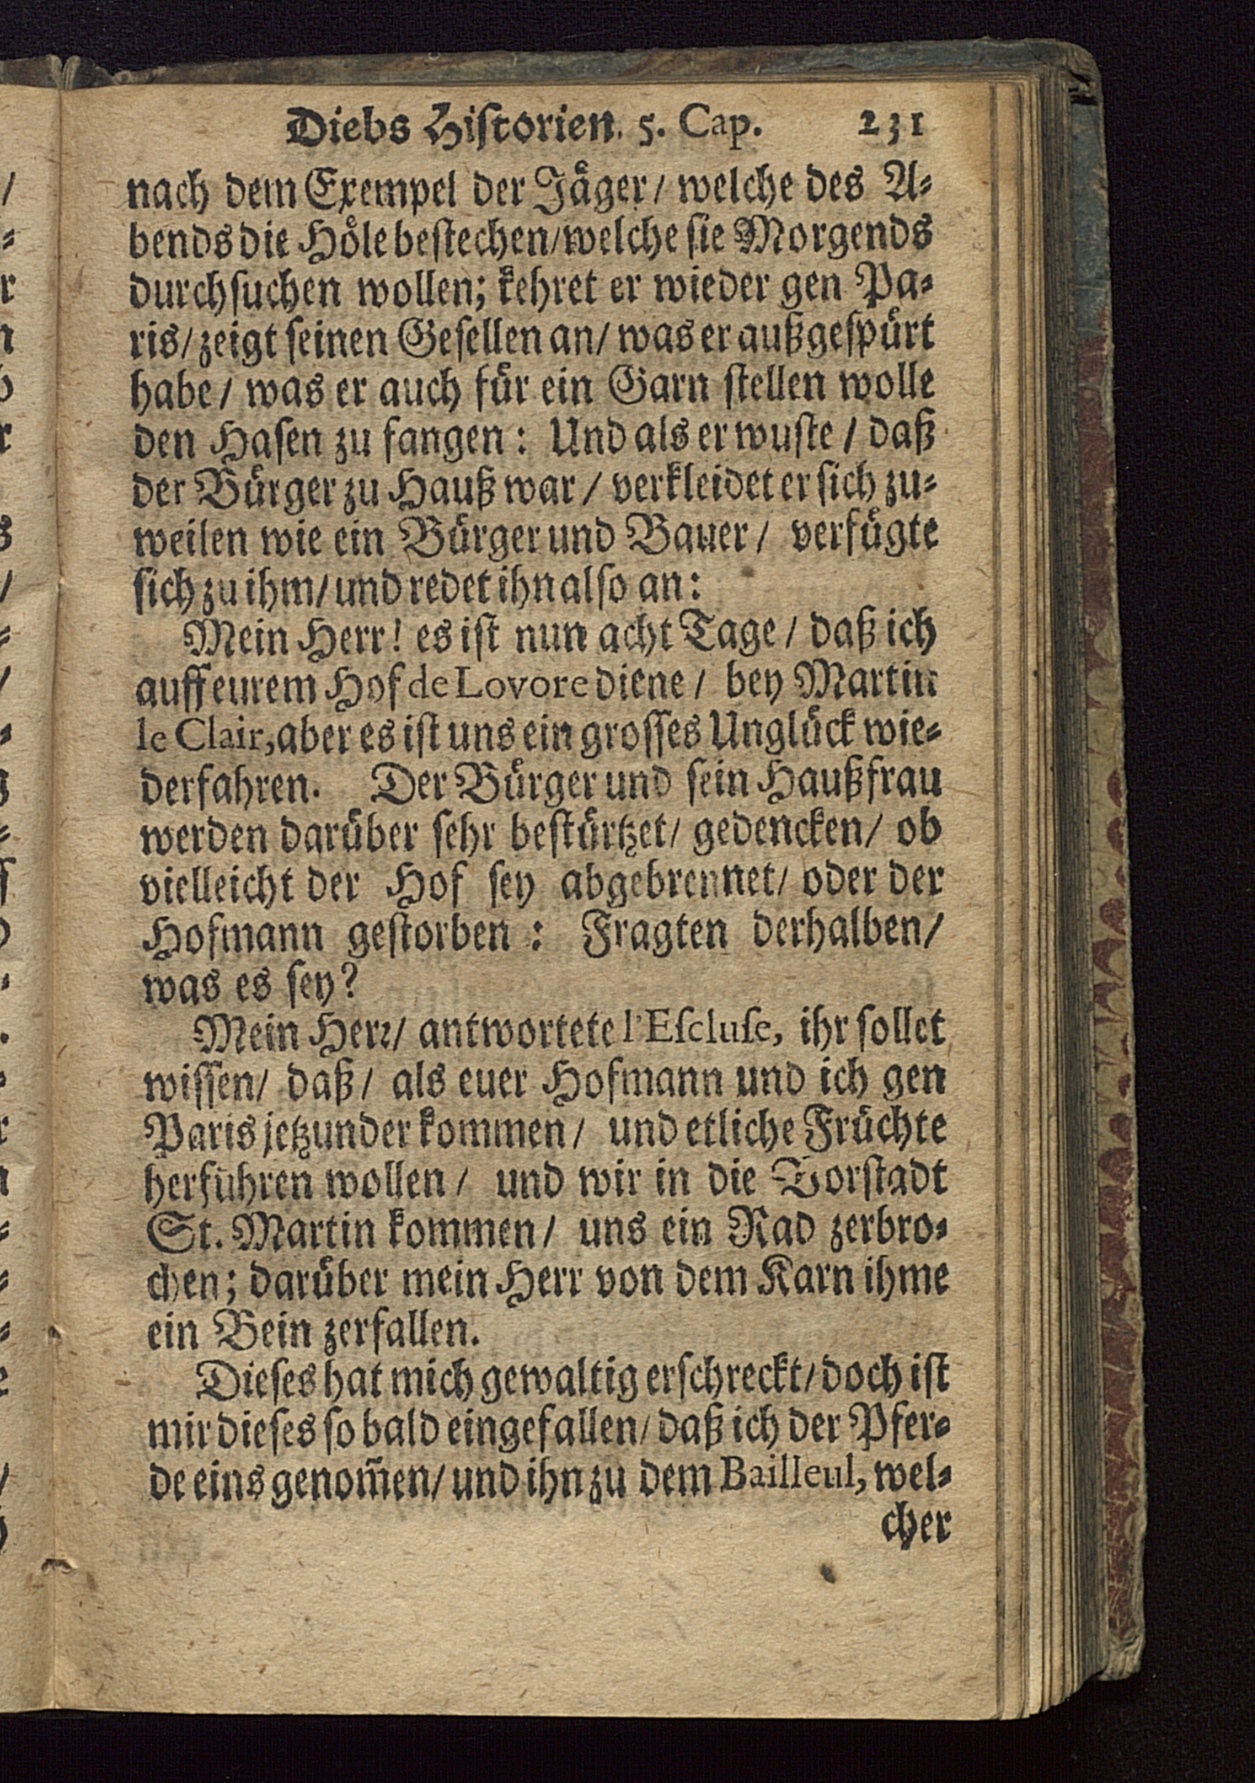 Diebs Historien. 5. Cap. 231
nach dem Exempel der Jäger/ welche des A-
bends die Höle bestechen/welche sie Morgends
durchsuchen wollen; kehret er wieder gen Pa-
ris/ zeigt seinen Gesellen an/ was er außgespürt
habe/ was er auch für ein Garn stellen wolle
den Hasen zu fangen: Und als er wuste/ daß
der Bürger zu Hauß war/ verkleidet er sich zu-
weilen wie ein Bürger und Bauer/ verfügte
sich zu ihm/ und redet ihn also an:
Mein Herr! es ist nun acht Tage/ daß ich
auff eurem Hof de Lovore diene/ bey Martin
le Clair, aber es ist uns ein grosses Unglück wie-
derfahren. Der Bürger und sein Haußfrau
werden darüber sehr bestürtzet/ gedencken/ ob
vielleicht der Hof sey abgebrennet/ oder der
Hofmann gestorben: Fragten derhalben/
was es sey?
Mein Herr/ antwortete l'Escluse, ihr sollet
wissen/ daß/ als euer Hofmann und ich gen
Paris jetzunder kommen/ und etliche Früchte
herführen wollen/ und wir in die Vorstadt
St. Martin kommen/ uns ein Rad zerbro-
chen; darüber mein Herr von dem Karn ihme
ein Bein zerfallen.
Dieses hat mich gewaltig erschreckt/ doch ist
mir dieses so bald eingefallen/ daß ich der Pfer-
de eins genom̃en/ und ihn zu dem Bailleul, wel-
cher